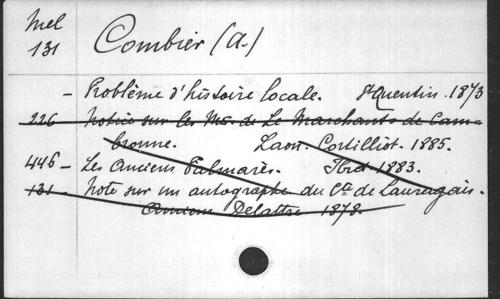 Mel
131
Combier (A.)
– Problème d'histoire locale. St Quentin. 1873
226 Notice sur les Ms. de Le Marchant de Cam-
bronne. Laon. Cortilliot. 1885.
446 – Les Anciens Palmarès. Ibid. 1883.
131 – Note sur un autographe du Cte de Lauragais.
Amiens Delattre 1878.